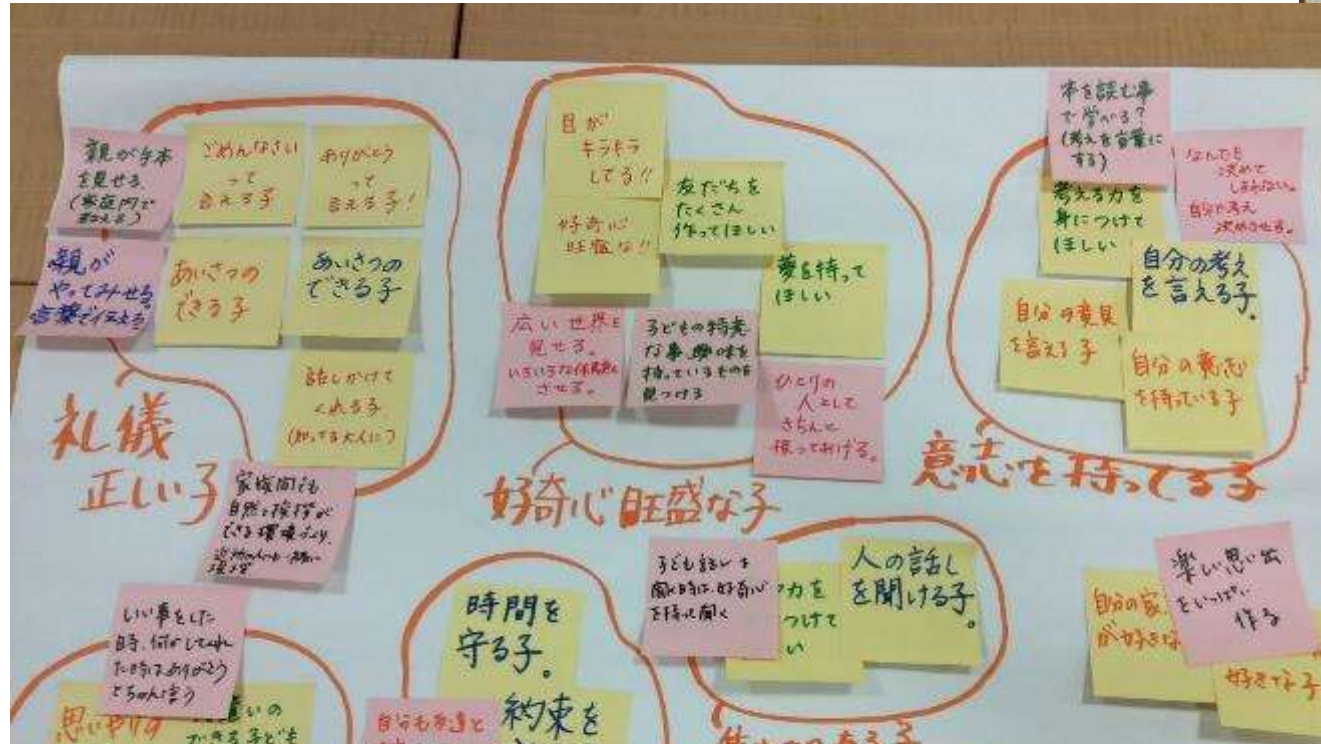 親が手本
を見せる
(家庭内で
教える)
ごめんなさい
って
言える子
ありがとう
って
言える子!
親が
やってみせる。
言葉で伝えよう
あいさつの
できる子
あいさつの
できる子
話しかけて
くれる子
(知ってる大人に)
礼儀
正しい子
家族間でも
自然と挨拶が
できる環境づくり
目が
キラキラ
してる!!
友だちを
たくさん
作ってほしい
好奇心
旺盛な!!
夢を持って
ほしい
広い世界を
見せる。
いろいろな体験を
させる。
子どもの特意
な事、興味を
持っているものを
見つける
ひとりの
人として
きちんと
扱ってあげる。
好奇心旺盛な子
本を読む事
で学べる?
(考えを言葉に
する)
なんでも
決めて
しまわない。
自分で考え
決めさせる。
考える力を
身につけて
ほしい
自分の考え
を言える子。
自分の意見
を言える子
自分の意志
を持っている子
意志を持ってる子
いい事をした
時、何かしてくれ
た時はありがとう
とちゃんと言う
思いやりの
いの
できる子ども
時間を
守る子。
自分も友達と
約束を
子ども話しを
聞く時は、好奇心
を持って聞く
力を
つけて
い
人の話し
を聞ける子。
自分の家
が好きな
楽しい思い出
をいっぱい
作る
好きな子